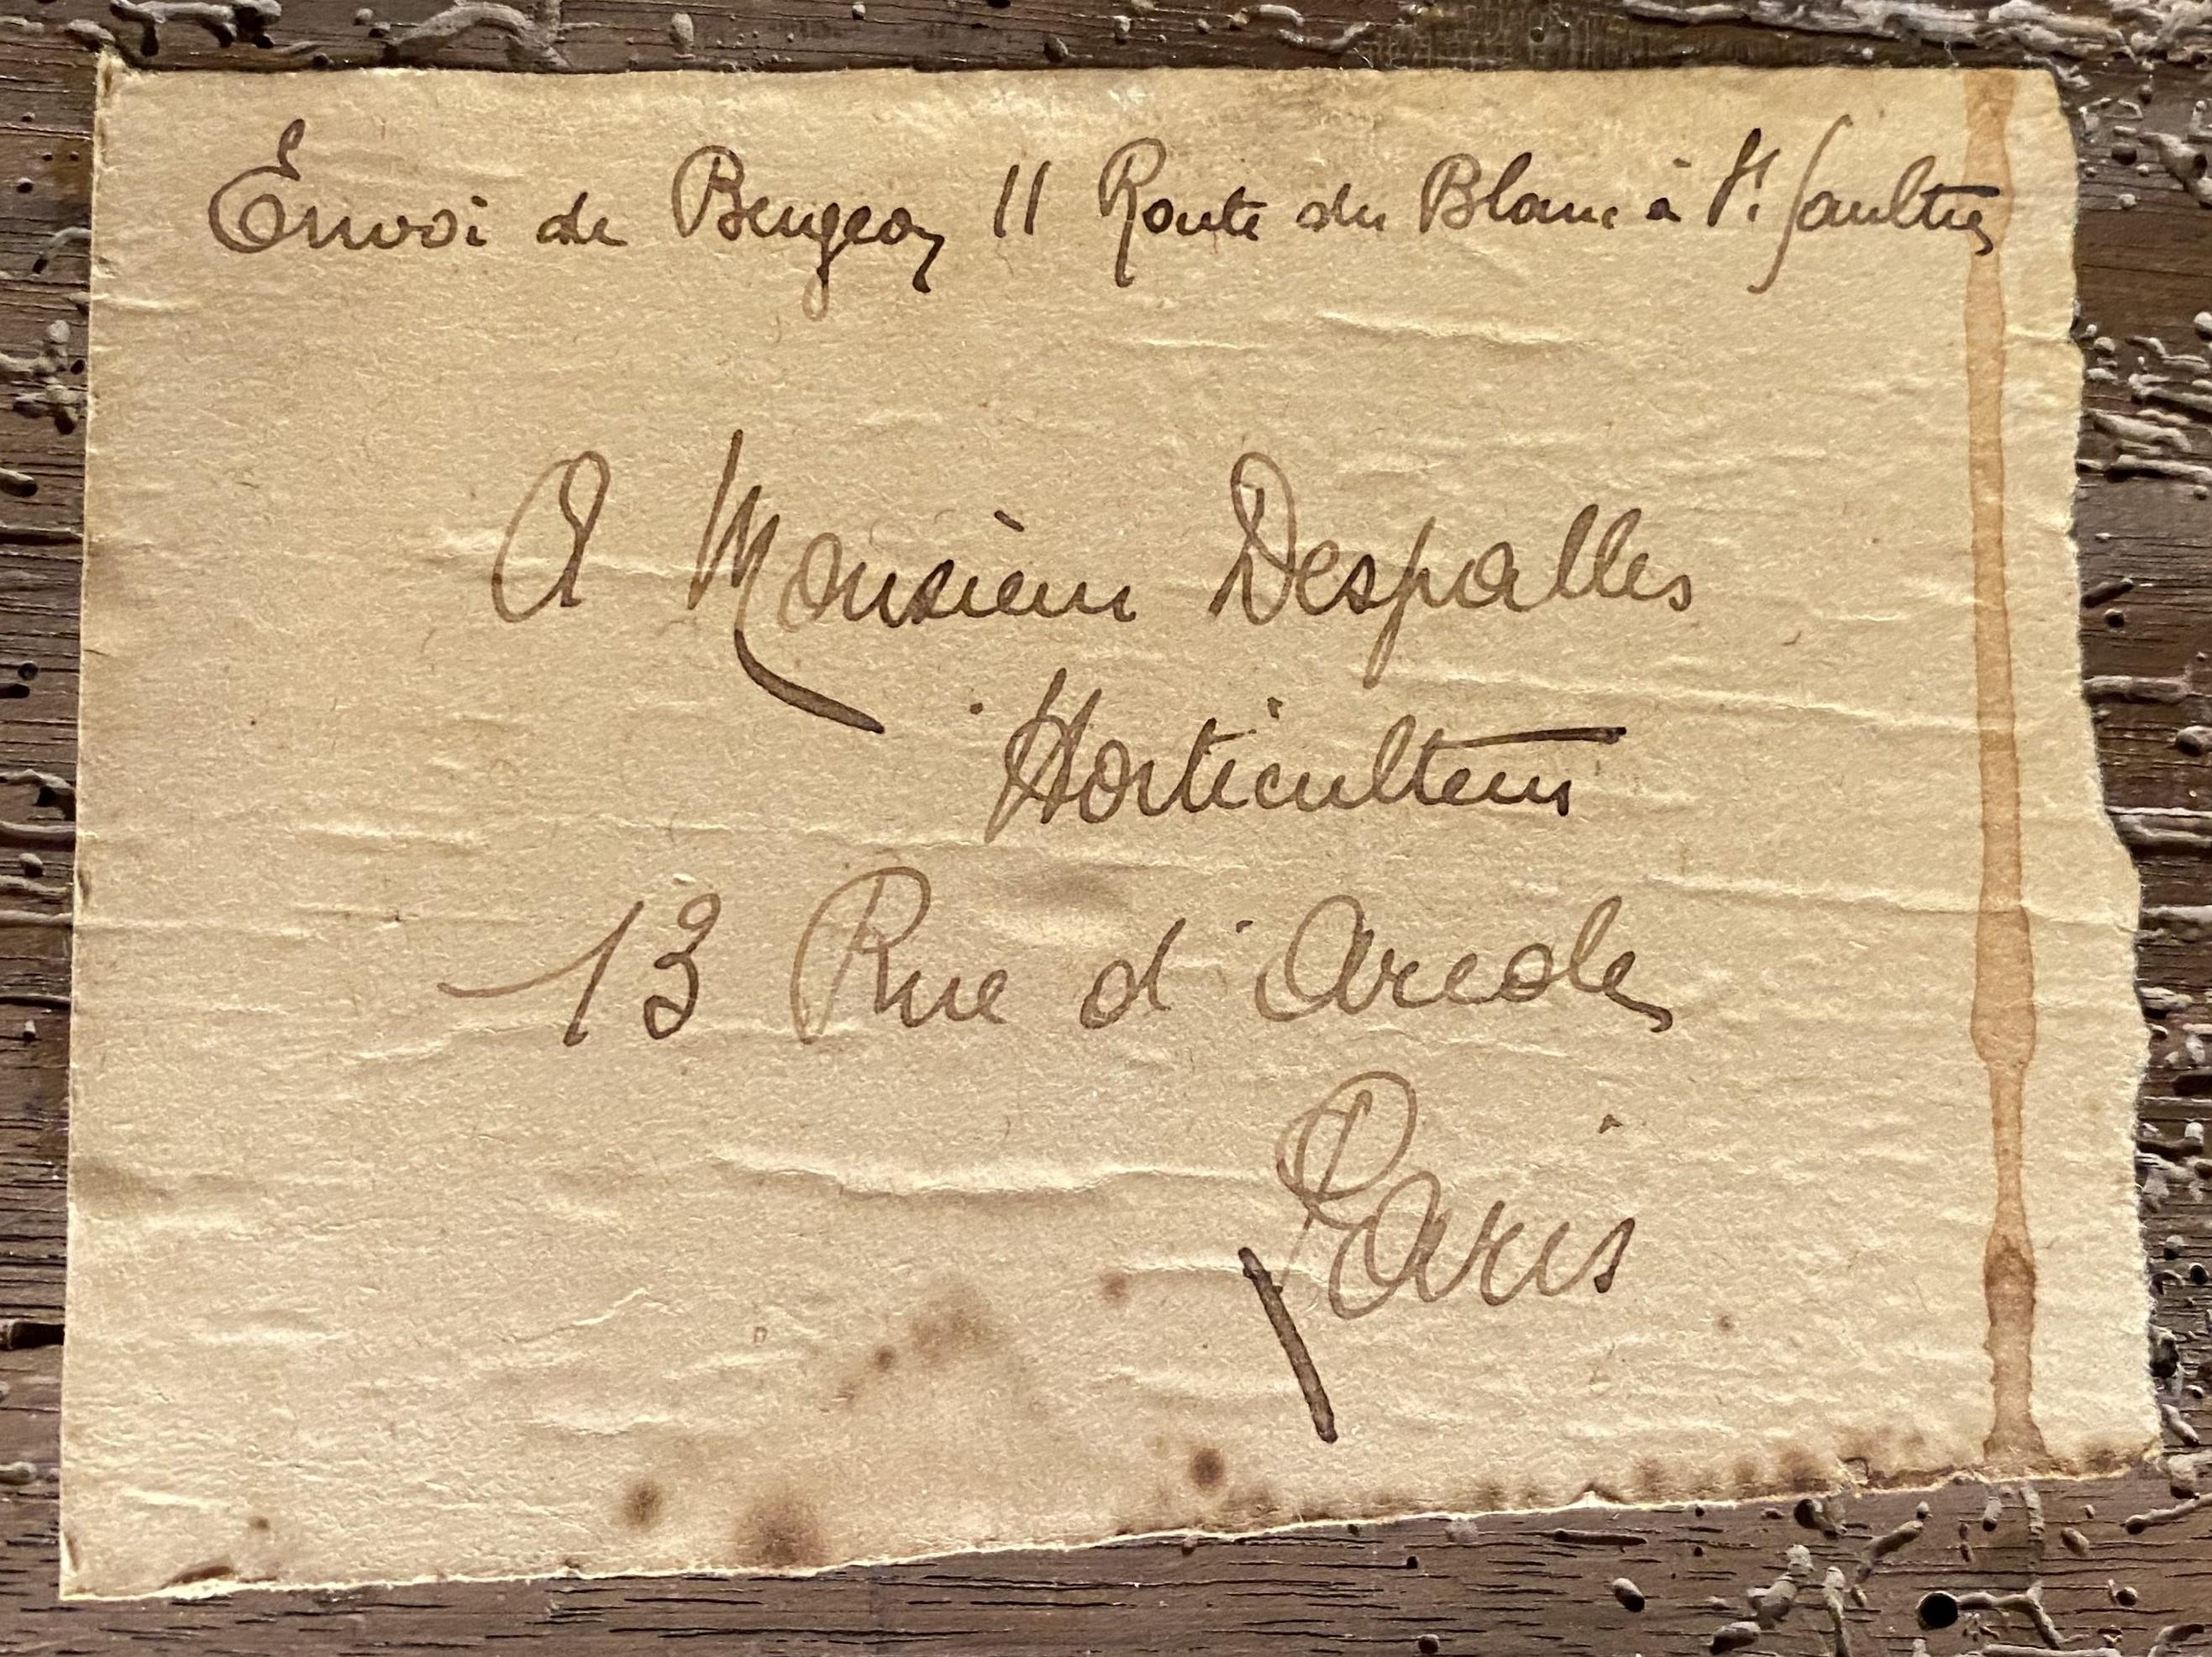 Envoi de Bergeon 11 Route du Blanc à St Gaultier
A Monsieur Despalles
Horticulteur
13 Rue d'Arcole
Paris